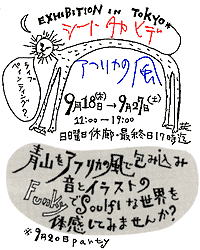 EXHIBITION IN TOKYO*
シートタカヒデ
アフリカの風
ライブ
ペインティング?
9月18日(木)→9月27日(土)
11:00→19:00
日曜日休廊・最終日17時迄
青山をアフリカの風で包み込み
音とイラストの
FunkyでSoulfulな世界を
体感してみませんか?
*9月20日party